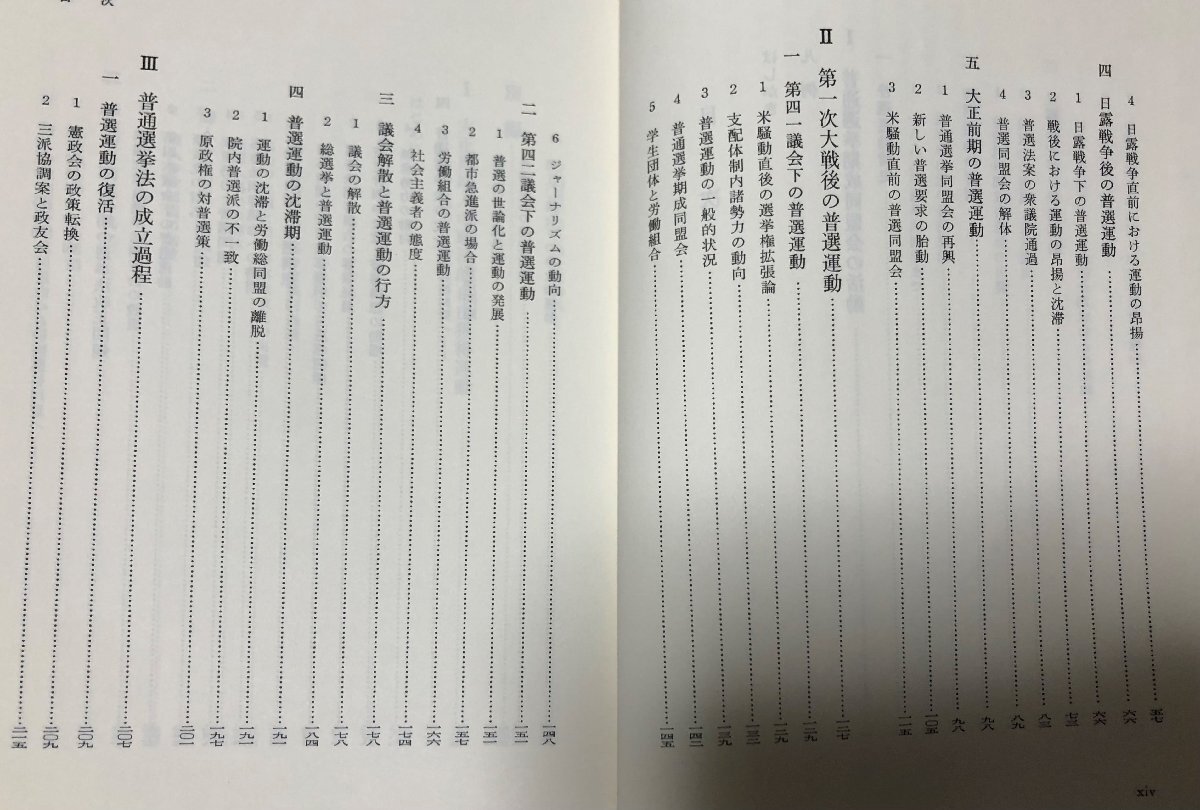 4 日露戦争直前における運動の昂揚……五七
四 日露戦争後の普選運動……六六
1 日露戦争下の普選運動……六六
2 戦後における運動の昂揚と沈滞……七三
3 普選法案の衆議院通過……八三
4 普選同盟会の解体……八九
五 大正前期の普選運動……九八
1 普通選挙同盟会の再興……九八
2 新しい普選要求の胎動……一〇五
3 米騒動直前の普選同盟会……一一五
Ⅱ 第一次大戦後の普選運動……一二七
一 第四一議会下の普選運動……一二九
1 米騒動直後の選挙権拡張論……一二九
2 支配体制内諸勢力の動向……一三二
3 普選運動の一般的状況……一三九
4 普通選挙期成同盟会……一四二
5 学生団体と労働組合……一四五
xiv
次
6 ジャーナリズムの動向……一四八
二 第四二議会下の普選運動……一五一
1 普選の世論化と運動の発展……一五一
2 都市急進派の場合……一五七
3 労働組合の普選運動……一六六
4 社会主義者の態度……一七四
三 議会解散と普選運動の行方……一七八
1 議会の解散……一七八
2 総選挙と普選運動……一八四
四 普選運動の沈滞期……一九一
1 運動の沈滞と労働総同盟の離脱……一九一
2 院内普選派の不一致……一九七
3 原政権の対普選策……二〇一
Ⅲ 普通選挙法の成立過程……二〇七
一 普選運動の復活……二〇九
1 憲政会の政策転換……二〇九
2 三派協調案と政友会……二一五